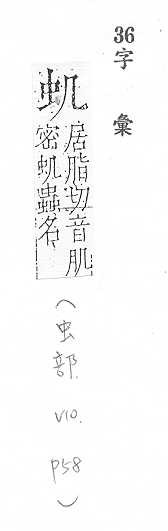 36字 彙
虮
居脂切音肌
密虮蟲名
(虫部. V10. P58)